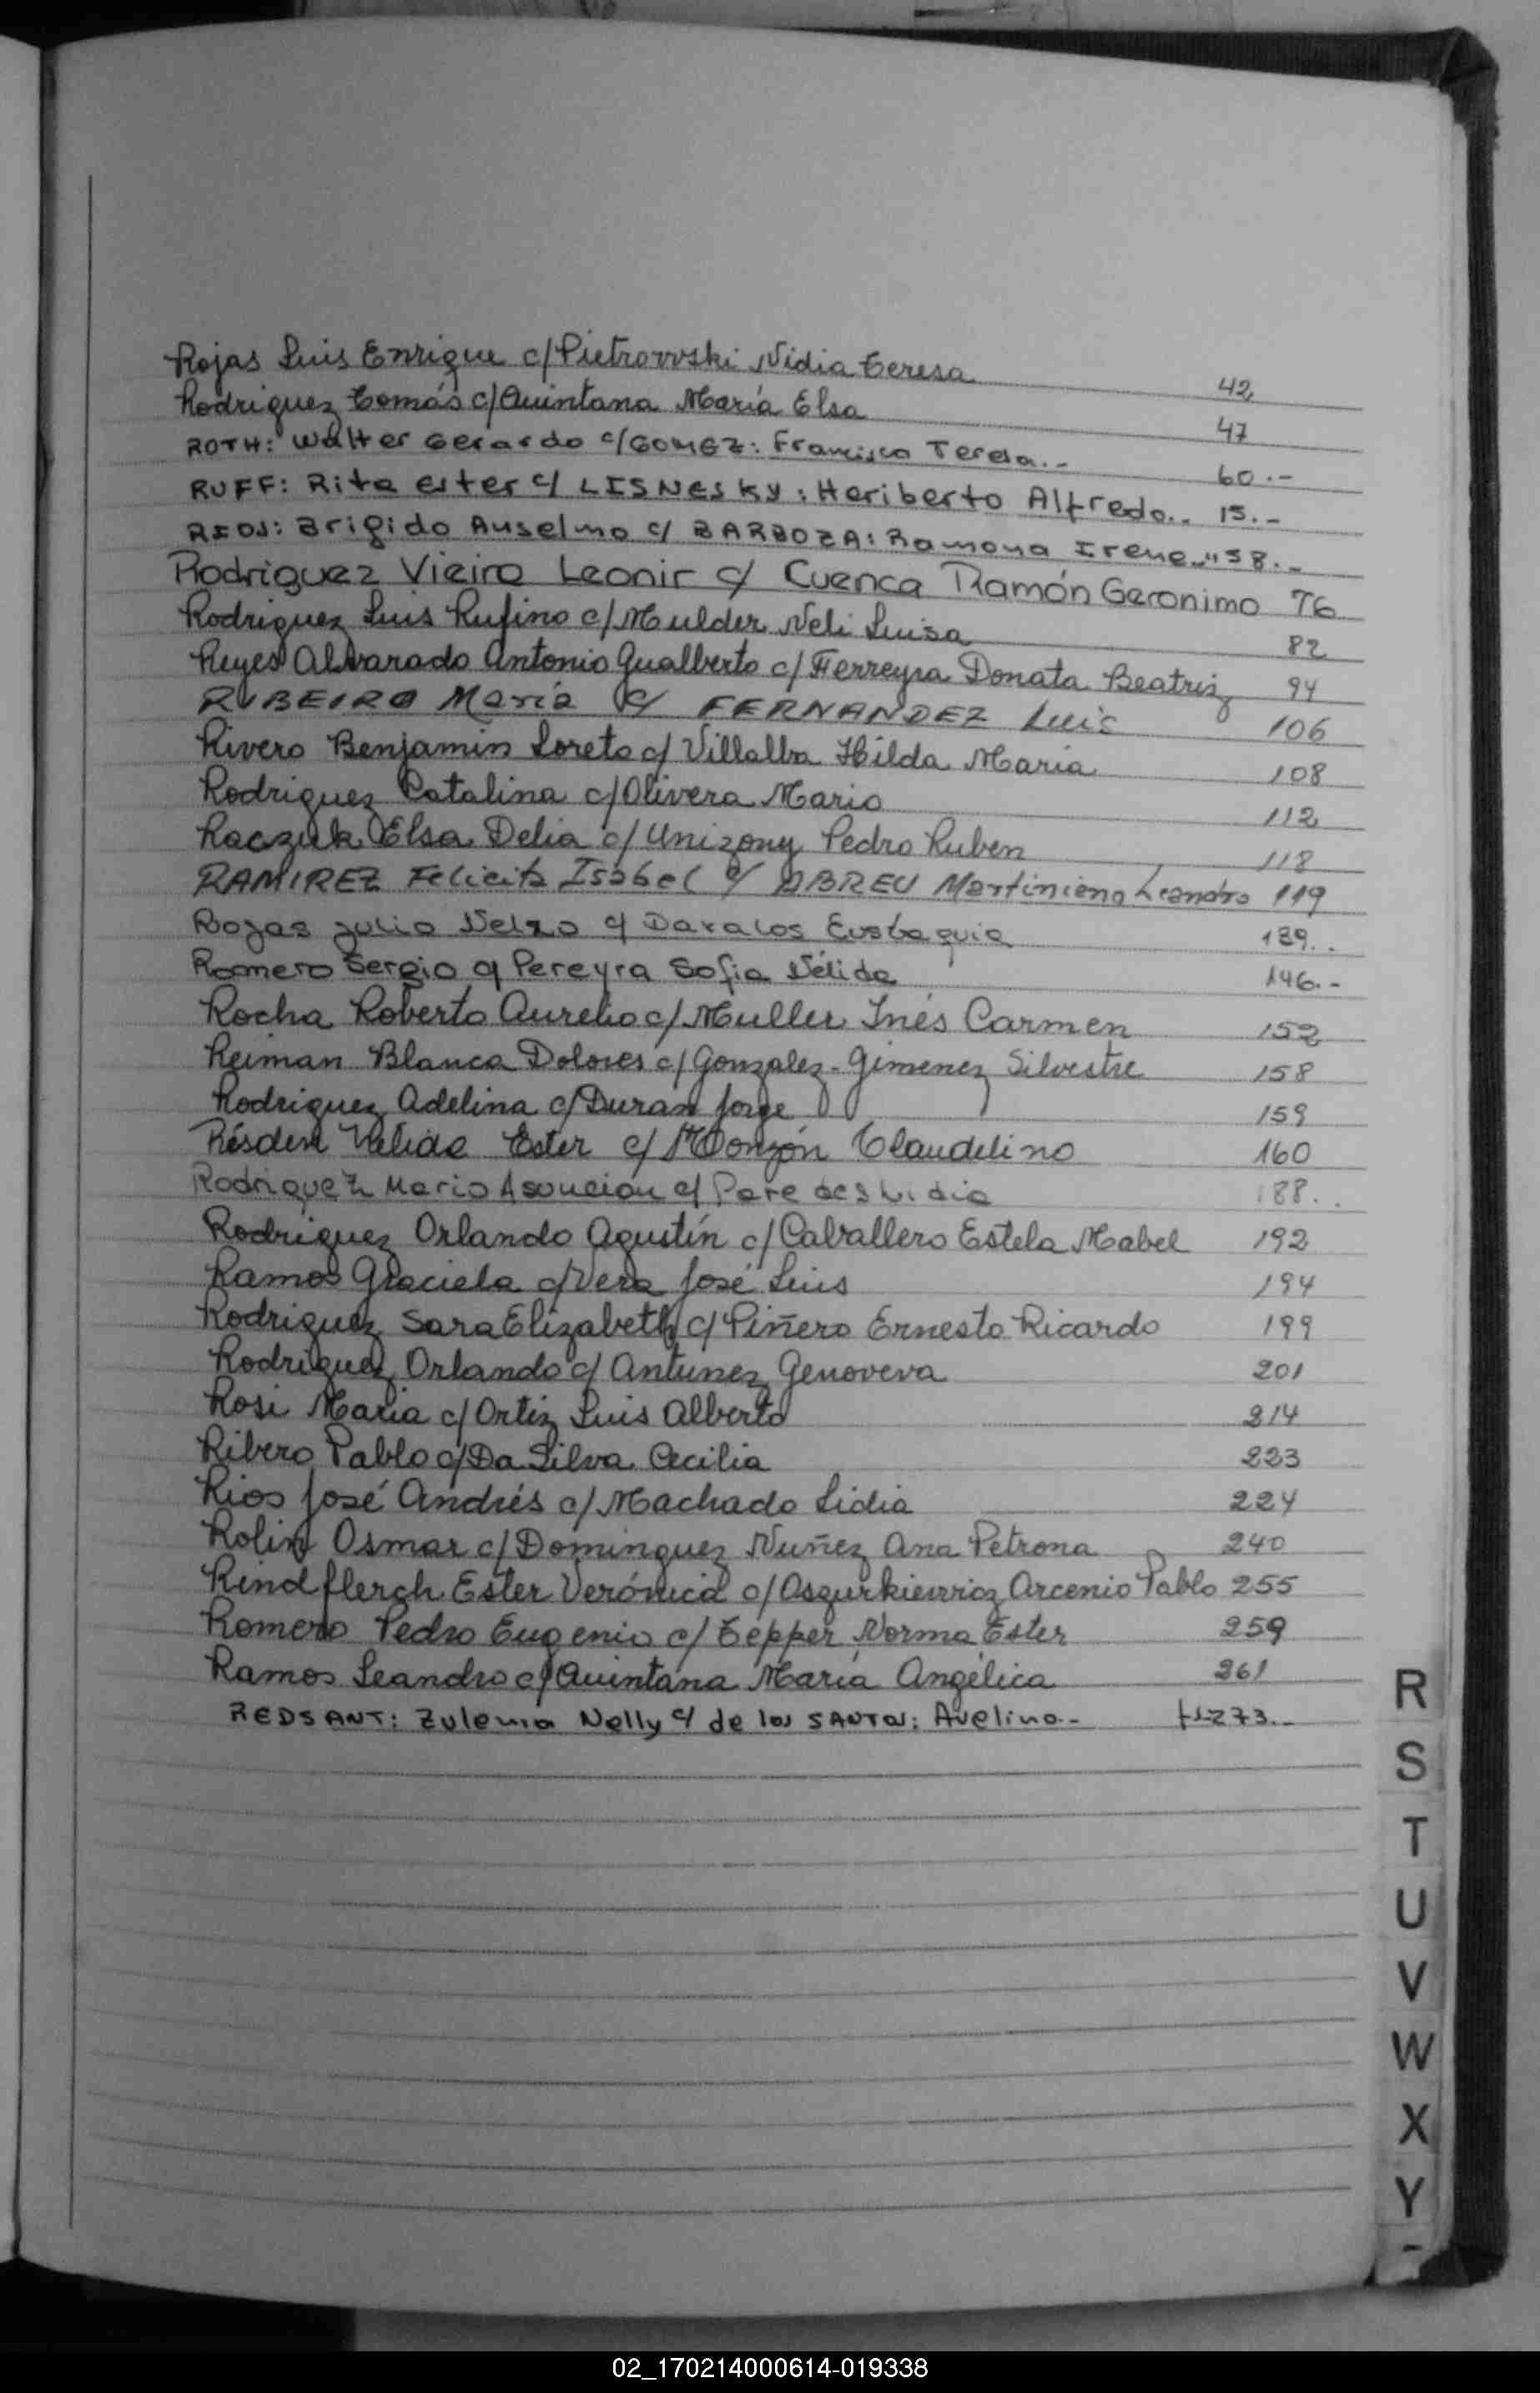 Rojas Luis Enrique c/Pietrowski Nidia Teresa 42
Rodriguez Tomás c/Quintana María Elsa 47
ROTH: Walter Gerardo c/GOMEZ: Francisca Teresa.- 60.-
RUFF: Rita ester c/ LISNESKY: Heriberto Alfredo.. 15.-
RIOS: Brigido Anselmo c/ BARBOZA: Ramona Irene..."58.-
Rodriguez Vieira Leonir c/ Cuenca Ramón Geronimo 76
Rodriguez Luis Rufino c/Mulder Neli Luisa 82
Reyes Alvarado Antonio Gualberto c/Ferreyra Donata Beatriz 94
RIBEIRO María c/ FERNANDEZ Luis 106
Rivero Benjamin Loreto c/ Villalba Hilda María 108
Rodriguez Catalina c/Olivera Mario 112
Raczuk Elsa Delia c/ Unizony Pedro Ruben 118
RAMIREZ Felicita Isabel c/ ABREU Martiniano Leandro 119
Rojas Julio Nelzo c/ Davalos Eustaquia 139..
Romero Sergio c/ Pereyra Sofia Nélida 146.-
Rocha Roberto Aurelio c/Muller Inés Carmen 152
Reiman Blanca Dolores c/Gonzalez-Gimenez Silvestre 158
Rodriguez Adelina c/Duran Jorge 159
Résden Nelida Ester c/ Monzón Claudelino 160
Rodriguez Mario Asuncion c/ Paredes Lidia 188..
Rodriguez Orlando Agustín c/Caballero Estela Mabel 192
Ramos Graciela c/Vera José Luis 194
Rodriguez Sara Elizabeth c/ Piñero Ernesto Ricardo 199
Rodriguez Orlando c/ Antunez Genoveva 201
Rosi María c/Ortiz Luis Alberto 214
Ribero Pablo c/Da Silva Cecilia 223
Rios José Andrés c/Machado Lidia 224
Rolin Osmar c/Dominguez Nuñez Ana Petrona 240
Rindflerch Ester Verónica c/ Aszurkiewicz Arcenio Pablo 255
Romero Pedro Eugenio c/ Tepper Norma Ester 259
Ramos Leandro c/Quintana María Angélica 261
REDSANT: Zulema Nelly c/ de los SANTOS: Avelino.- 273.-
R
S
T
U
V
W
X
Y
-
02_170214000614-019338